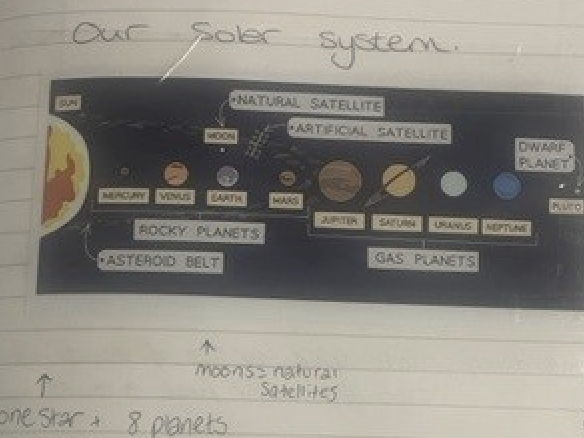 Our Soler system.
SUN
•NATURAL SATELLITE
MOON
•ARTIFICIAL SATELLITE
DWARF
PLANET
MERCURY VENUS EARTH MARS
PLUTO
JUPITER SATURN URANUS NEPTUNE
ROCKY PLANETS
•ASTEROID BELT
GAS PLANETS
moons = natural
Satellites
one star + 8 planets